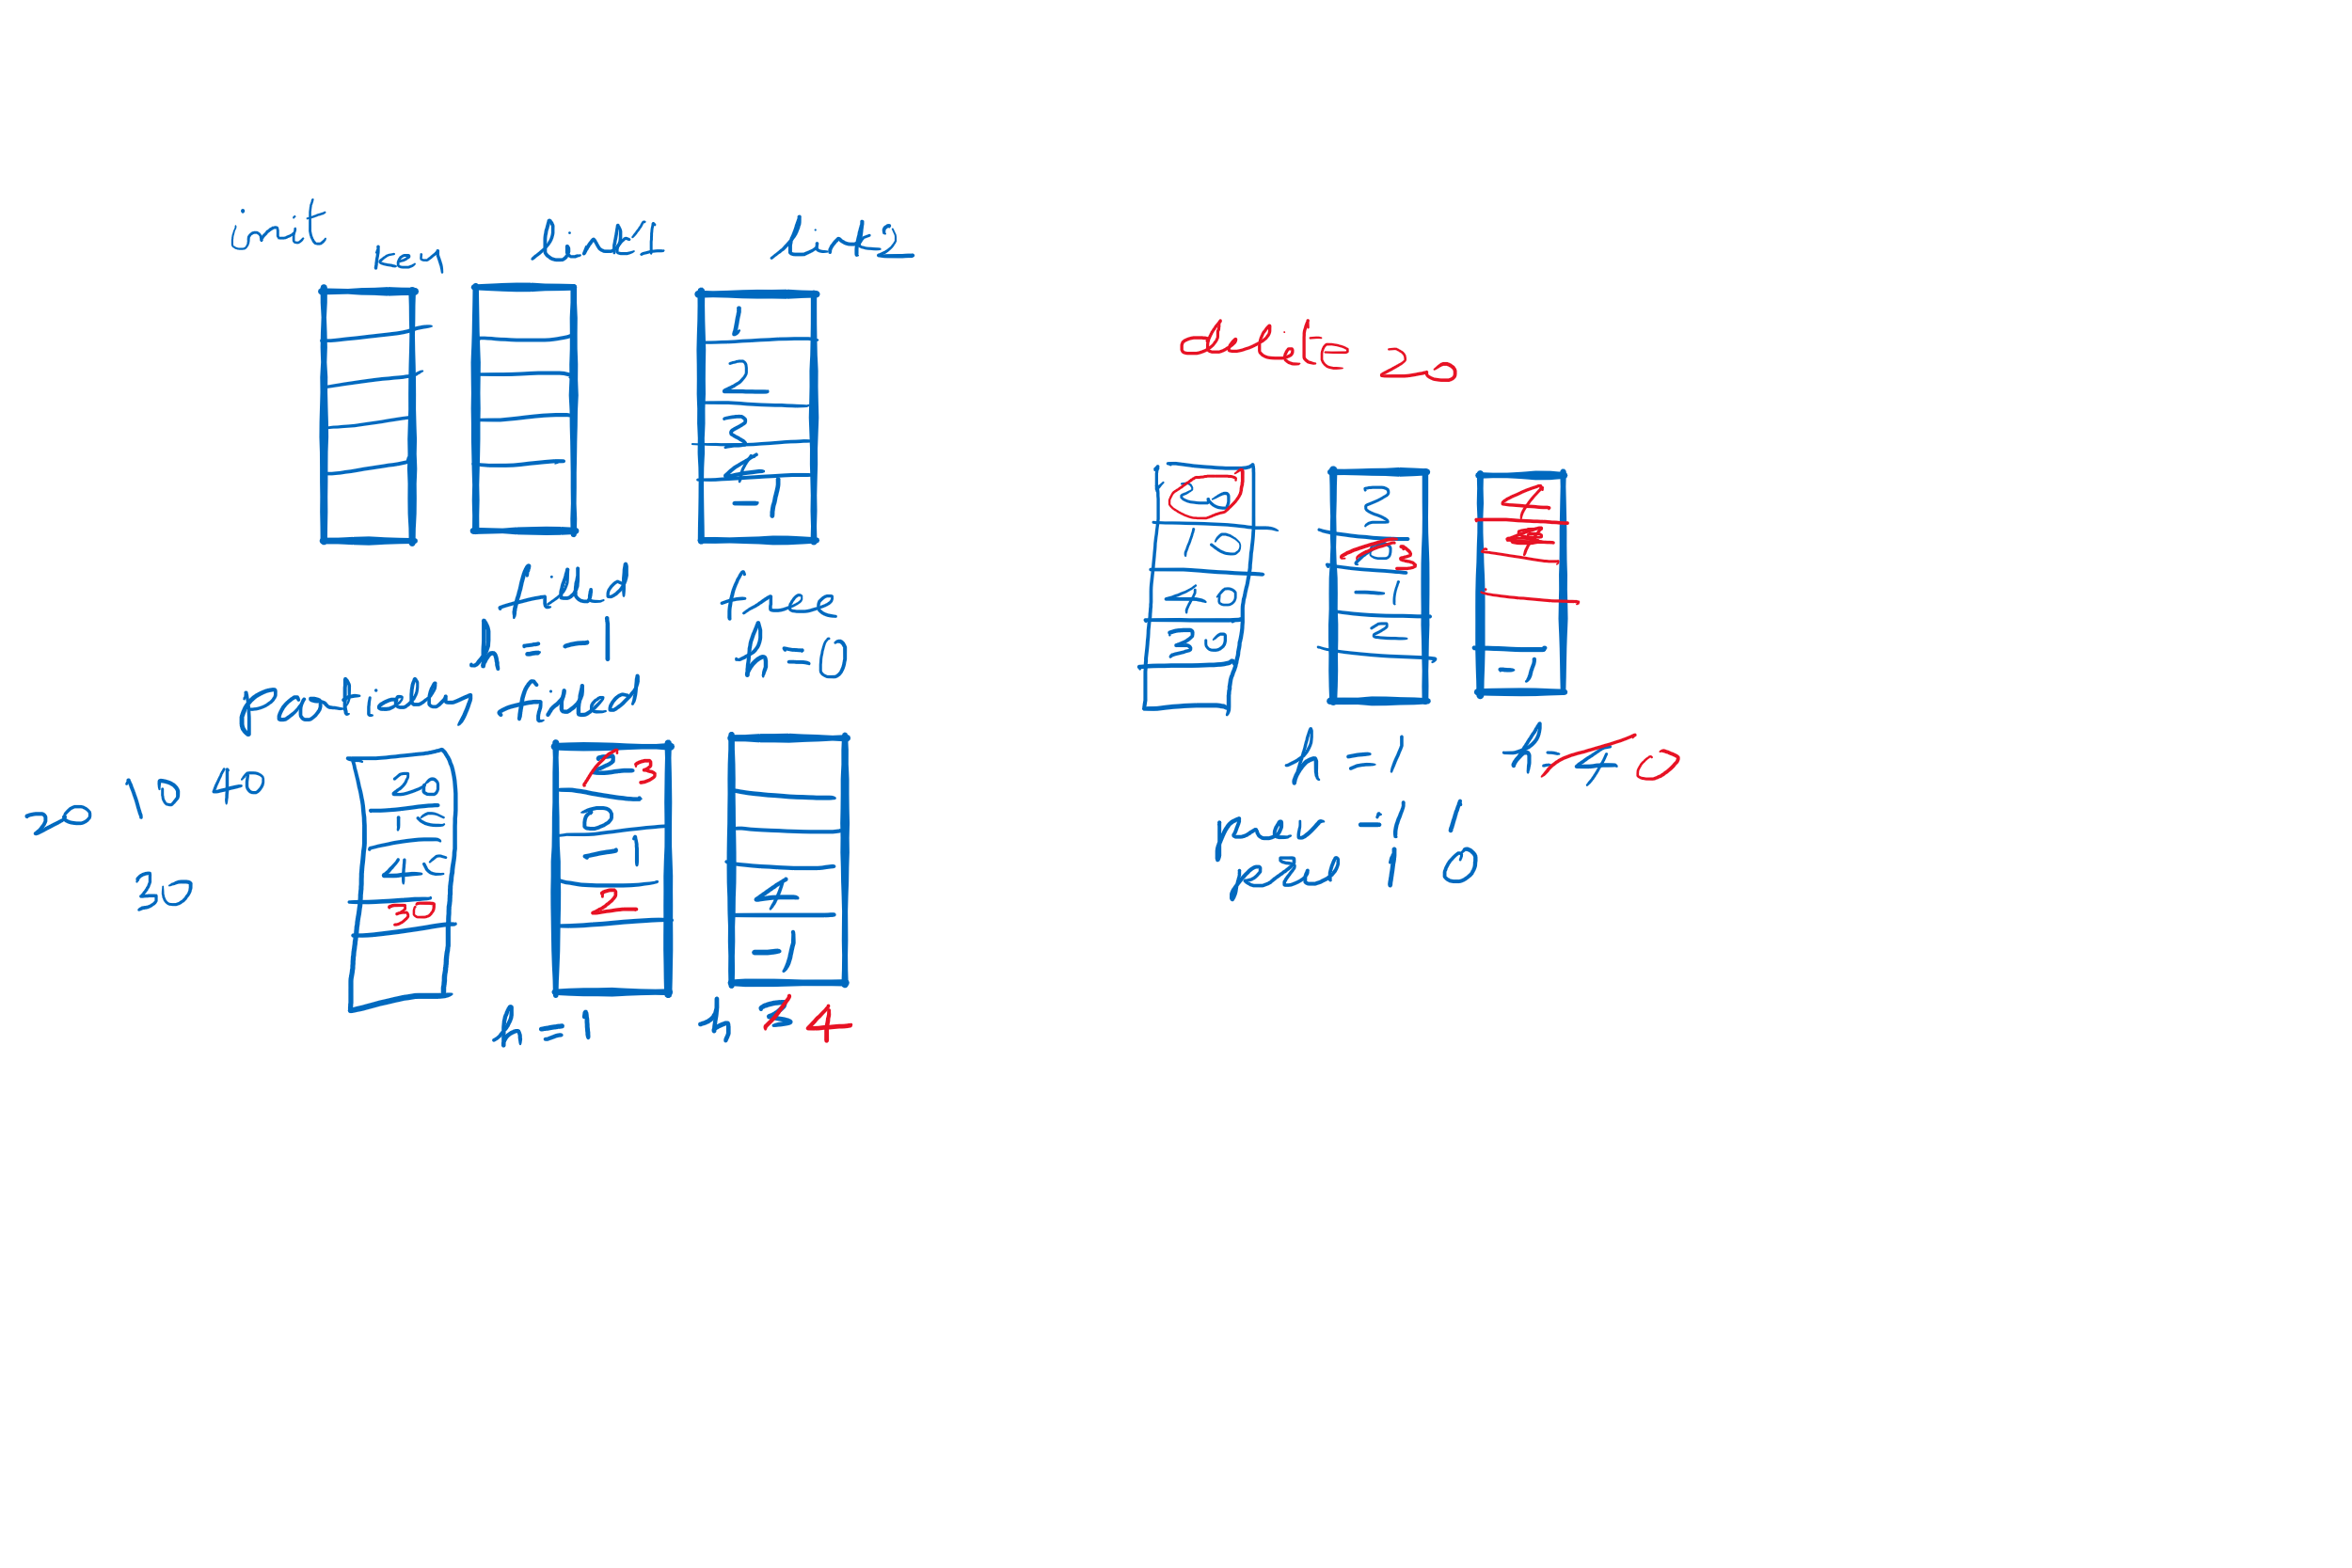 init
key link1 link2
1
2
3
4
-1
filled free
h = -1 h = 0
partially filled
20 10 40
30
20 2 3
10 0
40 -1
30 2 4
-1
h = 1 h 3 4
delete 20
20 3 4
10 0 3
40 -1
30 2
-1
h = 1 h = 4 0
prev -1 1
1 0